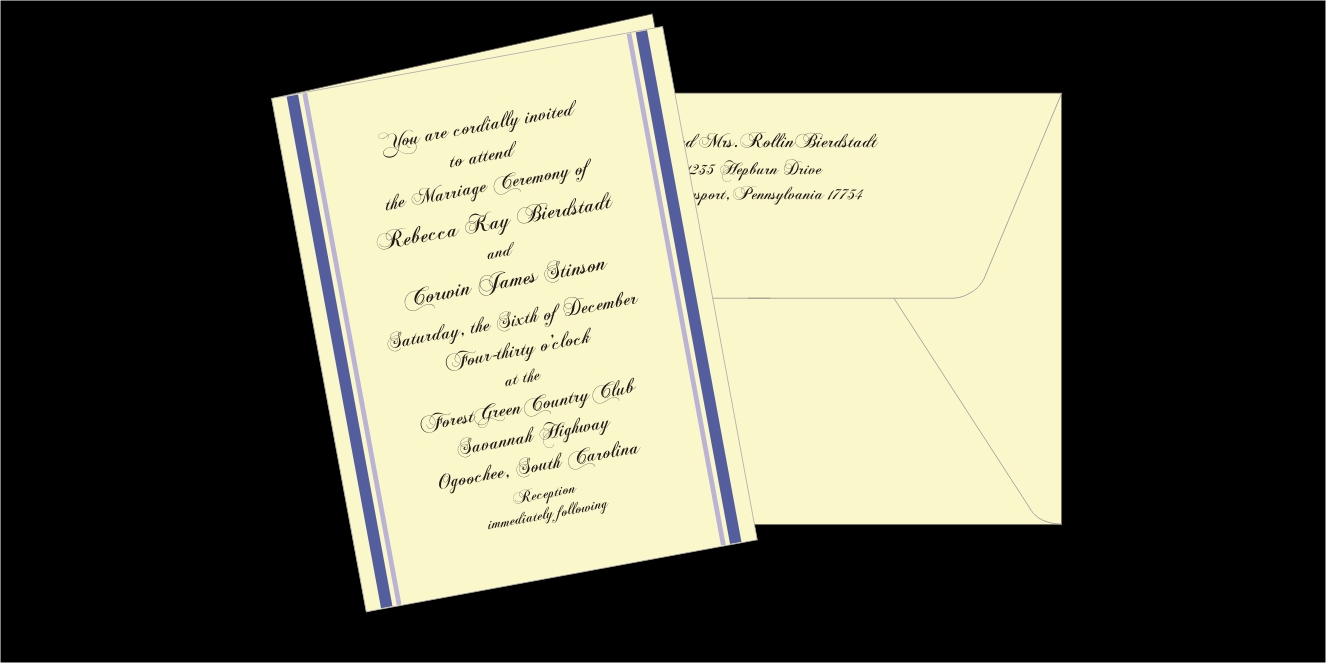 You are cordially invited
to attend
the Marriage Ceremony of
Rebecca Kay Bierdstadt
and
Corwin James Stinson
Saturday, the Sixth of December
Four-thirty o'clock
at the
Forest Green Country Club
Savannah Highway
Ogoochee, South Carolina
Reception
immediately following
d Mrs. Rollin Bierdstadt
1235 Hepburn Drive
sport, Pennsylvania 17754